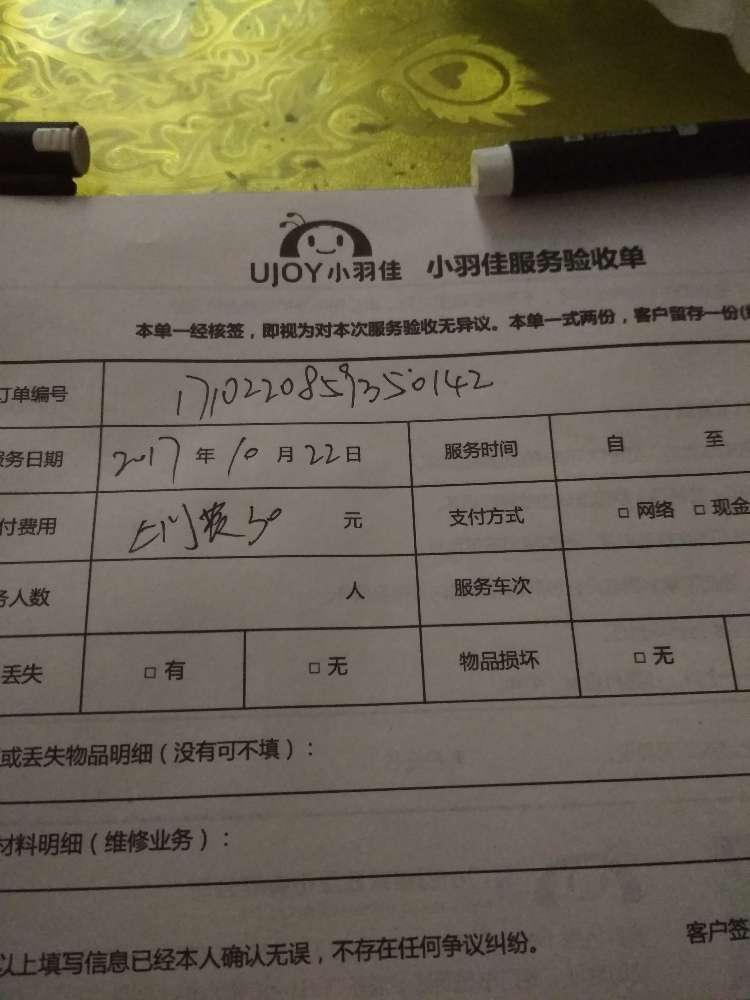 UJOY小羽佳 小羽佳服务验收单
本单一经核签，即视为对本次服务验收无异议。本单一式两份，客户留存一份
订单编号 1710220859350142
服务日期 2017 年 10 月 22 日 服务时间 自 至
付费用 上门费50 元 支付方式 □ 网络 □ 现金
务人数 人 服务车次
丢失 □ 有 □ 无 物品损坏 □ 无
或丢失物品明细（没有可不填）：
材料明细（维修业务）：
以上填写信息已经本人确认无误，不存在任何争议纠纷。 客户签